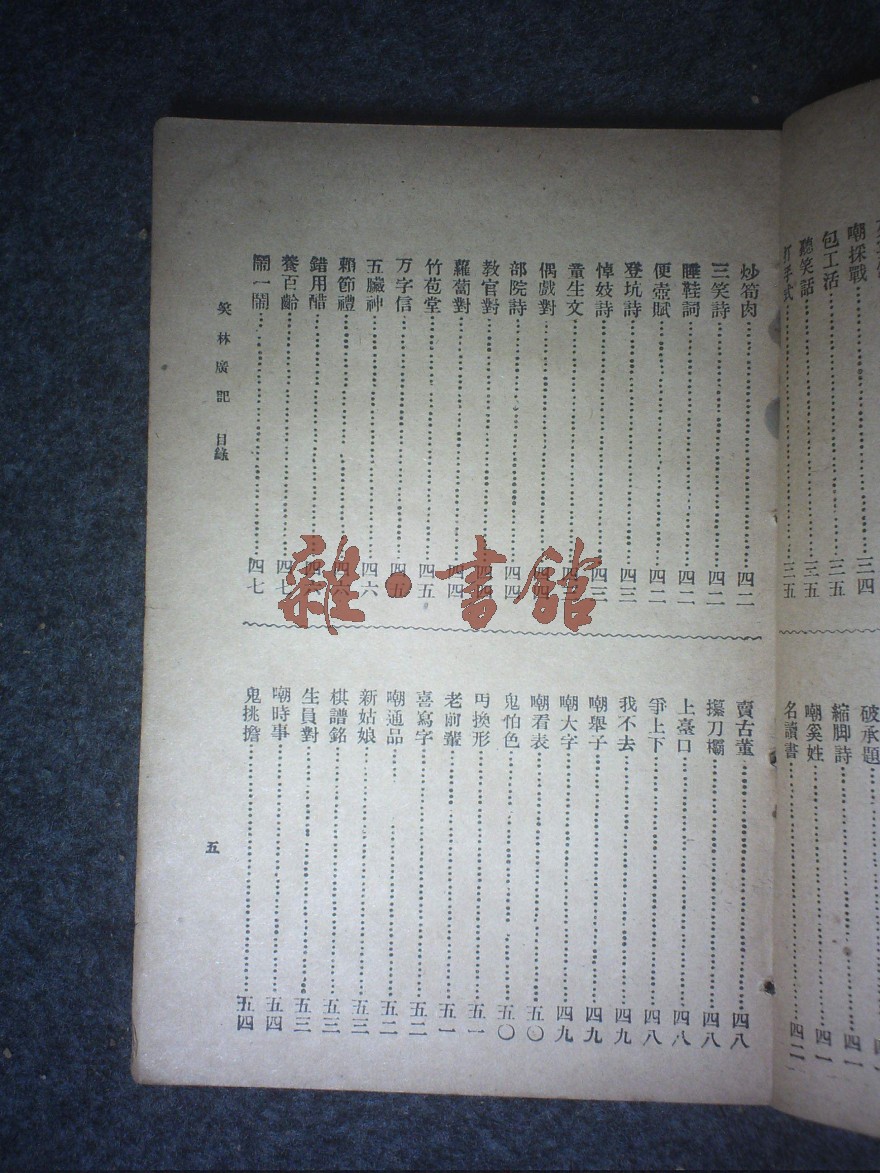 嘲採戰……三四
包工活……三五
聽笑話……三五
打手式……三五
破承題
縮脚詩……四一
嘲奚姓……四一
名讀書……四二
炒筍肉……四二
三笑詩……四二
睡鞋詞……四二
便壺賦……四二
登坑詩……四三
悼妓詩……四三
童生文……四三
偶戲對……四四
部院詩……四四
教官對……四四
蘿蔔對……四四
竹苞堂……四五
万字信……四五
五臟神……四六
賴節禮……四六
錯用醋……四六
養百齡……四七
鬧一鬧……四七
賣古董……四八
攥刀欛……四八
上臺口……四八
爭上下……四八
我不去……四九
嘲舉子……四九
嘲大字……四九
嘲看表……五〇
鬼怕色……五〇
丐換形……五一
老前輩……五一
喜寫字……五二
嘲通品……五二
新姑娘……五三
棋譜銘……五三
生員對……五三
嘲時事……五四
鬼挑擔……五四
笑林廣記 目錄
五
雜·書館